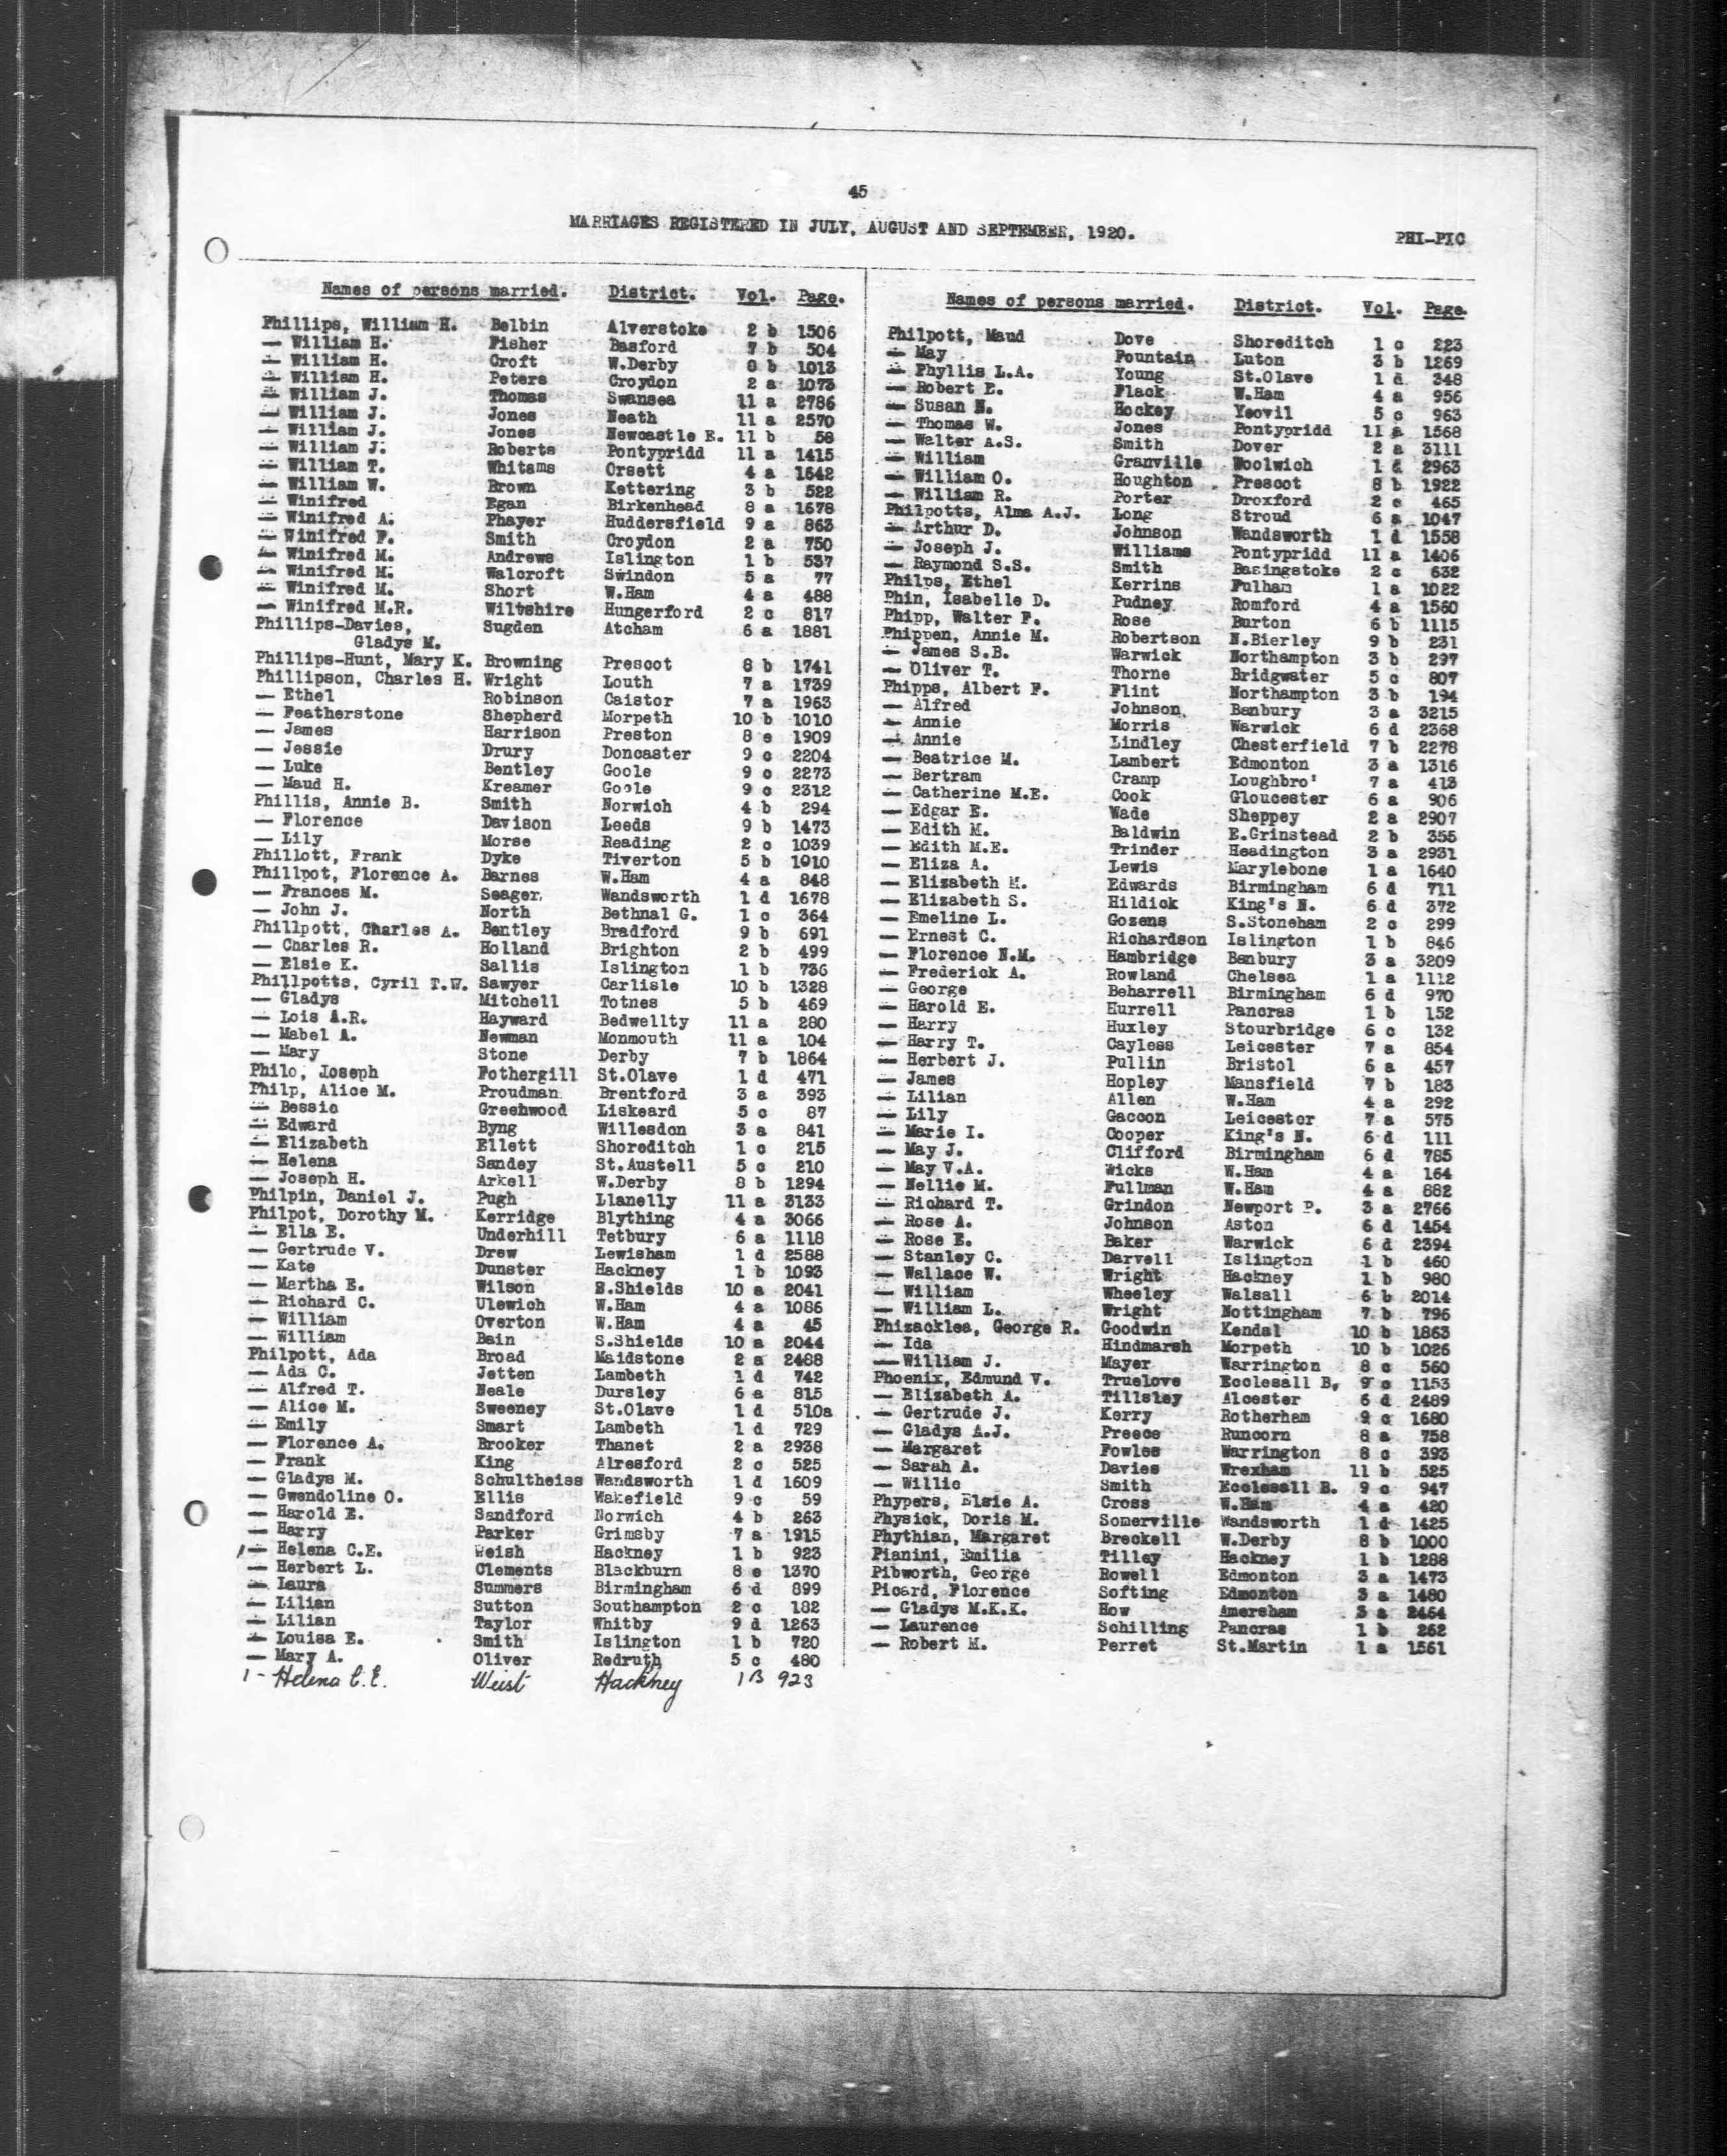 45
MARRIAGES REGISTERED IN JULY, AUGUST AND SEPTEMBER, 1920.
PHI-PIC
Names of persons married. District. Vol. Page.
Phillips, William H. Belbin Alverstoke 2 b 1506
— William H. Fisher Basford 7 b 504
— William H. Croft W.Derby 8 b 1013
— William H. Peters Croydon 2 a 1073
— William J. Thomas Swansea 11 a 2786
— William J. Jones Neath 11 a 2570
— William J. Jones Newcastle E. 11 b 58
— William J. Roberts Pontypridd 11 a 1415
— William T. Whitams Orsett 4 a 1642
— William W. Brown Kettering 3 b 522
— Winifred Egan Birkenhead 8 a 1678
— Winifred A. Phayer Huddersfield 9 a 863
— Winifred F. Smith Croydon 2 a 750
— Winifred M. Andrews Islington 1 b 537
— Winifred M. Walcroft Swindon 5 a 77
— Winifred M. Short W.Ham 4 a 488
— Winifred M.R. Wiltshire Hungerford 2 c 817
Phillips-Davies, Sugden Atcham 6 a 1881
Gladys M.
Phillips-Hunt, Mary K. Browning Prescot 8 b 1741
Phillipson, Charles H. Wright Louth 7 a 1739
— Ethel Robinson Caistor 7 a 1963
— Featherstone Shepherd Morpeth 10 b 1010
— James Harrison Preston 8 e 1909
— Jessie Drury Doncaster 9 c 2204
— Luke Bentley Goole 9 c 2273
— Maud H. Kreamer Goole 9 c 2312
Phillis, Annie B. Smith Norwich 4 b 294
— Florence Davison Leeds 9 b 1473
— Lily Morse Reading 2 c 1039
Phillott, Frank Dyke Tiverton 5 b 1010
Phillpot, Florence A. Barnes W.Ham 4 a 848
— Frances M. Seager, Wandsworth 1 d 1678
— John J. North Bethnal G. 1 c 364
Phillpott, Charles A. Bentley Bradford 9 b 691
— Charles R. Holland Brighton 2 b 499
— Elsie K. Sallis Islington 1 b 736
Phillpotts, Cyril T.W. Sawyer Carlisle 10 b 1328
— Gladys Mitchell Totnes 5 b 469
— Lois A.R. Hayward Bedwellty 11 a 280
— Mabel A. Newman Monmouth 11 a 104
— Mary Stone Derby 7 b 1864
Philo, Joseph Fothergill St.Olave 1 d 471
Philp, Alice M. Proudman Brentford 3 a 393
— Bessie Greenwood Liskeard 5 c 87
— Edward Byng Willesdon 3 a 841
— Elizabeth Ellett Shoreditch 1 c 215
— Helena Sandey St.Austell 5 c 210
— Joseph H. Arkell W.Derby 8 b 1294
Philpin, Daniel J. Pugh Llanelly 11 a 3133
Philpot, Dorothy M. Kerridge Blything 4 a 3066
— Ella E. Underhill Tetbury 6 a 1118
— Gertrude V. Drew Lewisham 1 d 2588
— Kate Dunster Hackney 1 b 1093
— Martha E. Wilson S.Shields 10 a 2041
— Richard C. Ulewich W.Ham 4 a 1086
— William Overton W.Ham 4 a 45
— William Bain S.Shields 10 a 2044
Philpott, Ada Broad Maidstone 2 a 2488
— Ada C. Jetten Lambeth 1 d 742
— Alfred T. Neale Dursley 6 a 815
— Alice M. Sweeney St.Olave 1 d 510a
— Emily Smart Lambeth 1 d 729
— Florence A. Brooker Thanet 2 a 2938
— Frank King Alresford 2 c 525
— Gladys M. Schultheiss Wandsworth 1 d 1609
— Gwendoline O. Ellis Wakefield 9 c 59
— Harold E. Sandford Norwich 4 b 263
— Harry Parker Grimsby 7 a 1915
/— Helena C.E. Weish Hackney 1 b 923
— Herbert L. Clements Blackburn 8 e 1370
— Laura Summers Birmingham 6 d 899
— Lilian Sutton Southampton 2 c 182
— Lilian Taylor Whitby 9 d 1263
— Louisa E. Smith Islington 1 b 720
— Mary A. Oliver Redruth 5 c 480
1 - Helena C.E. Weist Hackney 1B 923
Names of persons married. District. Vol. Page.
Philpott, Maud Dove Shoreditch 1 c 223
— May Fountain Luton 3 b 1269
— Phyllis L.A. Young St.Olave 1 d 348
— Robert E. Flack W.Ham 4 a 956
— Susan N. Hockey Yeovil 5 c 963
— Thomas W. Jones Pontypridd 11 a 1568
— Walter A.S. Smith Dover 2 a 3111
— William Granville Woolwich 1 d 2963
— William O. Houghton Prescot 8 b 1922
— William R. Porter Droxford 2 c 465
Philpotts, Alma A.J. Long Stroud 6 a 1047
— Arthur D. Johnson Wandsworth 1 d 1558
— Joseph J. Williams Pontypridd 11 a 1406
— Raymond S.S. Smith Basingstoke 2 c 632
Philps, Ethel Kerrins Fulham 1 a 1022
Phin, Isabelle D. Pudney Romford 4 a 1560
Phipp, Walter F. Rose Burton 6 b 1115
Phippen, Annie M. Robertson N.Bierley 9 b 231
— James S.B. Warwick Northampton 3 b 297
— Oliver T. Thorne Bridgwater 5 c 807
Phipps, Albert F. Flint Northampton 3 b 194
— Alfred Johnson Banbury 3 a 3215
— Annie Morris Warwick 6 d 2368
— Annie Lindley Chesterfield 7 b 2278
— Beatrice M. Lambert Edmonton 3 a 1316
— Bertram Cramp Loughbro' 7 a 413
— Catherine M.E. Cook Gloucester 6 a 906
— Edgar E. Wade Sheppey 2 a 2907
— Edith M. Baldwin E.Grinstead 2 b 355
— Edith M.E. Trinder Headington 3 a 2931
— Eliza A. Lewis Marylebone 1 a 1640
— Elizabeth M. Edwards Birmingham 6 d 711
— Elizabeth S. Hildick King's N. 6 d 372
— Emeline L. Gozens S.Stoneham 2 c 299
— Ernest C. Richardson Islington 1 b 846
— Florence N.M. Hambridge Banbury 3 a 3209
— Frederick A. Rowland Chelsea 1 a 1112
— George Beharrell Birmingham 6 d 970
— Harold E. Hurrell Pancras 1 b 152
— Harry Huxley Stourbridge 6 c 132
— Harry T. Cayless Leicester 7 a 854
— Herbert J. Pullin Bristol 6 a 457
— James Hopley Mansfield 7 b 183
— Lilian Allen W.Ham 4 a 292
— Lily Gacoon Leicester 7 a 575
— Marie I. Cooper King's N. 6 d 111
— May J. Clifford Birmingham 6 d 785
— May V.A. Wicks W.Ham 4 a 164
— Nellie M. Fullman W.Ham 4 a 882
— Richard T. Grindon Newport P. 3 a 2766
— Rose A. Johnson Aston 6 d 1454
— Rose E. Baker Warwick 6 d 2394
— Stanley C. Darvell Islington 1 b 460
— Wallace W. Wright Hackney 1 b 980
— William Wheeley Walsall 6 b 2014
— William L. Wright Nottingham 7 b 796
Phizacklea, George R. Goodwin Kendal 10 b 1863
— Ida Hindmarsh Morpeth 10 b 1026
— William J. Mayer Warrington 8 c 560
Phoenix, Edmund V. Truelove Ecclesall B, 9 c 1153
— Elizabeth A. Tillsley Alcester 6 d 2489
— Gertrude J. Kerry Rotherham 9 c 1680
— Gladys A.J. Preece Runcorn 8 a 758
— Margaret Fowles Warrington 8 c 393
— Sarah A. Davies Wrexham 11 b 525
— Willie Smith Ecclesall B. 9 c 947
Phypers, Elsie A. Cross W.Ham 4 a 420
Physick, Doris M. Somerville Wandsworth 1 d 1425
Phythian, Margaret Breckell W.Derby 8 b 1000
Pianini, Emilia Tilley Hackney 1 b 1288
Pibworth, George Rowell Edmonton 3 a 1473
Picard, Florence Softing Edmonton 3 a 1480
— Gladys M.K.K. How Amersham 3 a 2464
— Laurence Schilling Pancras 1 b 262
— Robert M. Perret St.Martin 1 a 1561